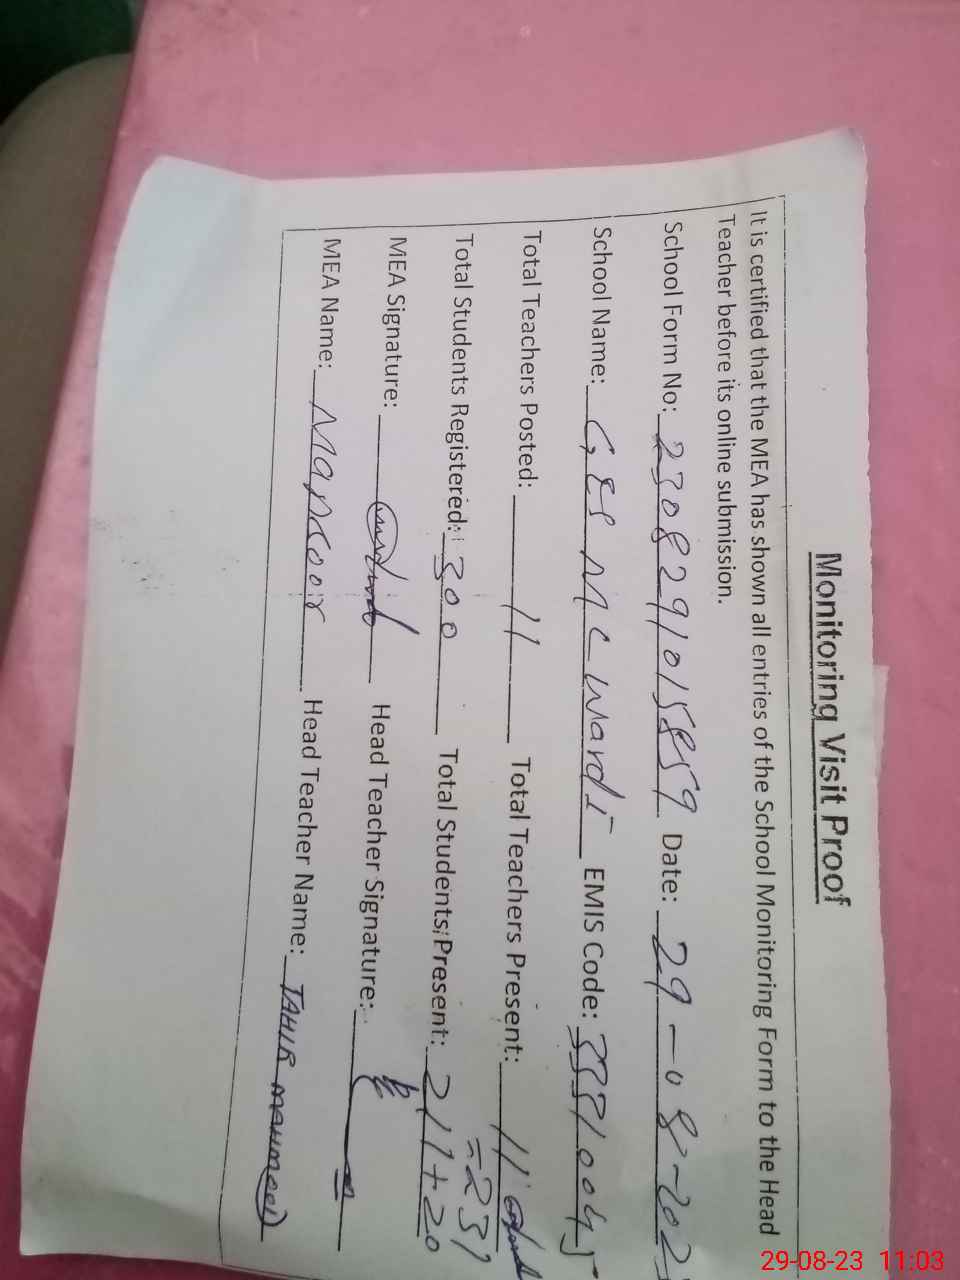 Monitoring Visit Proof
It is certified that the MEA has shown all entries of the School Monitoring Form to the Head
Teacher before its online submission.
School Form No: 2308291015859 Date: 29-08-202
School Name: GES MC Ward 5 EMIS Code:
Total Teachers Posted: 11 Total Teachers Present: 11
Total Students Registered: 300 Total Students Present: 211+20
=231
MEA Signature: Head Teacher Signature:
MEA Name: Mansoor Head Teacher Name: TAHIR MAHMOOD
29-08-23 11:03